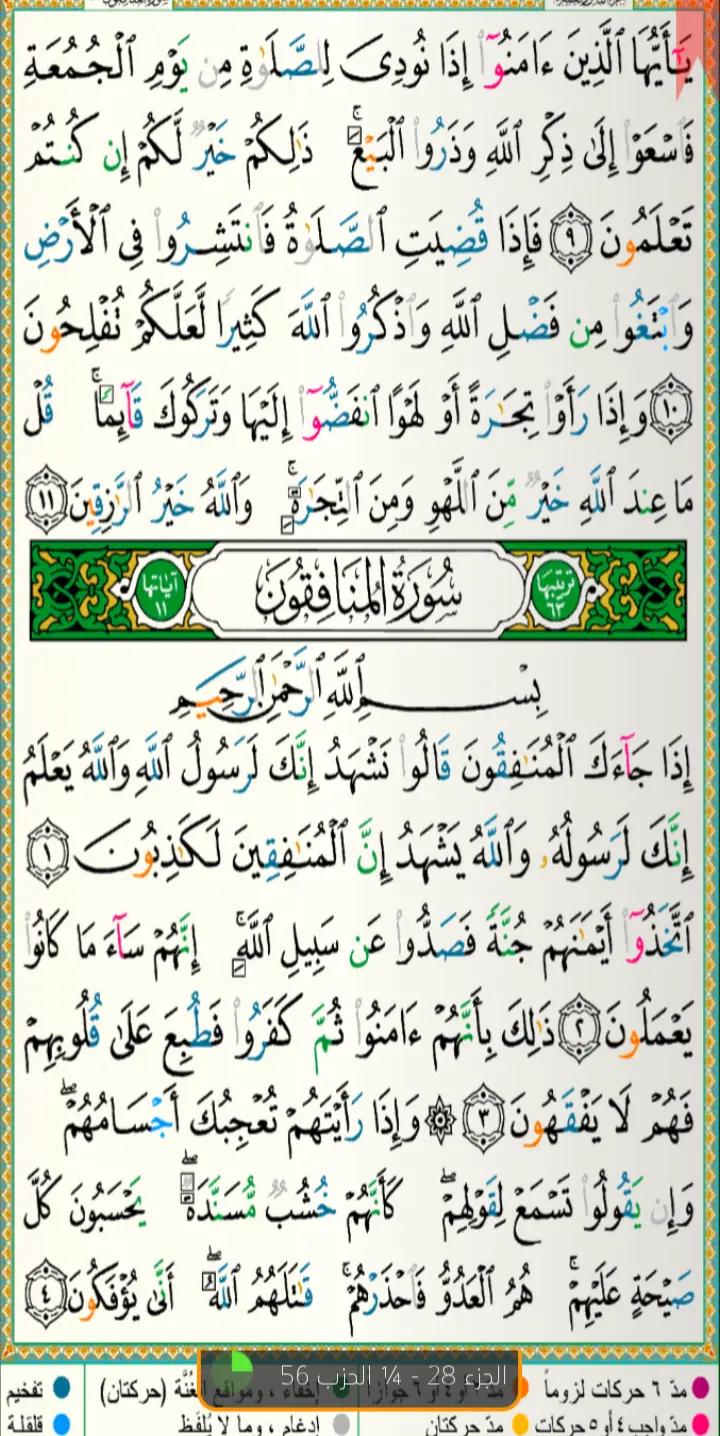 يَـٰٓأَيُّهَا ٱلَّذِينَ ءَامَنُوٓا۟ إِذَا نُودِىَ لِلصَّلَوٰةِ مِن يَوْمِ ٱلْجُمُعَةِ
فَٱسْعَوْا۟ إِلَىٰ ذِكْرِ ٱللَّهِ وَذَرُوا۟ ٱلْبَيْعَ ۚ ذَٰلِكُمْ خَيْرٌ لَّكُمْ إِن كُنتُمْ
تَعْلَمُونَ ٩ فَإِذَا قُضِيَتِ ٱلصَّلَوٰةُ فَٱنتَشِرُوا۟ فِى ٱلْأَرْضِ
وَٱبْتَغُوا۟ مِن فَضْلِ ٱللَّهِ وَٱذْكُرُوا۟ ٱللَّهَ كَثِيرًا لَّعَلَّكُمْ تُفْلِحُونَ
١٠ وَإِذَا رَأَوْا۟ تِجَـٰرَةً أَوْ لَهْوًا ٱنفَضُّوٓا۟ إِلَيْهَا وَتَرَكُوكَ قَآئِمًا ۚ قُلْ
مَا عِندَ ٱللَّهِ خَيْرٌ مِّنَ ٱللَّهْوِ وَمِنَ ٱلتِّجَـٰرَةِ ۚ وَٱللَّهُ خَيْرُ ٱلرَّٰزِقِينَ ١١
ترتيبها ٦٣ سُورَةُ المُنَافِقُونَ آياتها ١١
بِسْمِ ٱللَّهِ ٱلرَّحْمَـٰنِ ٱلرَّحِيمِ
إِذَا جَآءَكَ ٱلْمُنَـٰفِقُونَ قَالُوا۟ نَشْهَدُ إِنَّكَ لَرَسُولُ ٱللَّهِ وَٱللَّهُ يَعْلَمُ
إِنَّكَ لَرَسُولُهُۥ وَٱللَّهُ يَشْهَدُ إِنَّ ٱلْمُنَـٰفِقِينَ لَكَـٰذِبُونَ ١
ٱتَّخَذُوٓا۟ أَيْمَـٰنَهُمْ جُنَّةً فَصَدُّوا۟ عَن سَبِيلِ ٱللَّهِ ۚ إِنَّهُمْ سَآءَ مَا كَانُوا۟
يَعْمَلُونَ ٢ ذَٰلِكَ بِأَنَّهُمْ ءَامَنُوا۟ ثُمَّ كَفَرُوا۟ فَطُبِعَ عَلَىٰ قُلُوبِهِمْ
فَهُمْ لَا يَفْقَهُونَ ٣ ۞ وَإِذَا رَأَيْتَهُمْ تُعْجِبُكَ أَجْسَامُهُمْ ۖ
وَإِن يَقُولُوا۟ تَسْمَعْ لِقَوْلِهِمْ ۖ كَأَنَّهُمْ خُشُبٌ مُّسَنَّدَةٌ ۖ يَحْسَبُونَ كُلَّ
صَيْحَةٍ عَلَيْهِمْ ۚ هُمُ ٱلْعَدُوُّ فَٱحْذَرْهُمْ ۚ قَـٰتَلَهُمُ ٱللَّهُ ۖ أَنَّىٰ يُؤْفَكُونَ ٤
الجزء 28 - ¼ الحزب 56
مدّ ٦ حركات لزوماً إخفاء ، ومواقع الغُنَّة (حركتان) تفخيم
مدّ واجب ٤ أو ٥ حركات مدّ حركتان إدغام ، وما لا يُلفَظ قلقلة